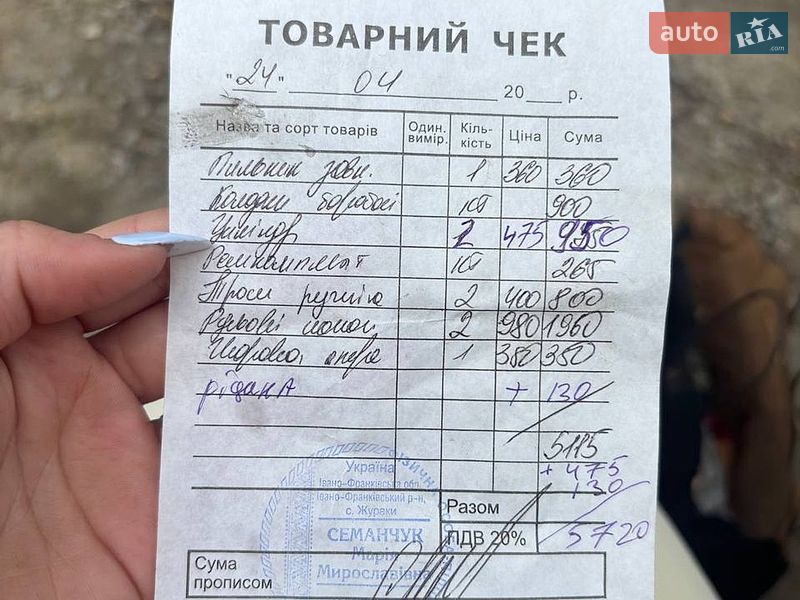 auto RIA.com
ТОВАРНИЙ ЧЕК
"24" 04 20 р.
Назва та сорт товарів Один. вимір. Кіль-кість Ціна Сума
Пильник зовн. 1 360 360
Колодки барабані кт 900
2 475 950
Ремкомплект кт 265
Троси ручніка 2 400 800
Рульові 2 980 1960
Шарова опора 1 350 350
рідина + 130
5115
+ 475
130
Разом
ПДВ 20% 5720
Україна
Івано-Франківська обл.
Івано-Франківський р-н,
с. Жураки
СЕМАНЧУК
Марія
Мирославівна
Сума прописом